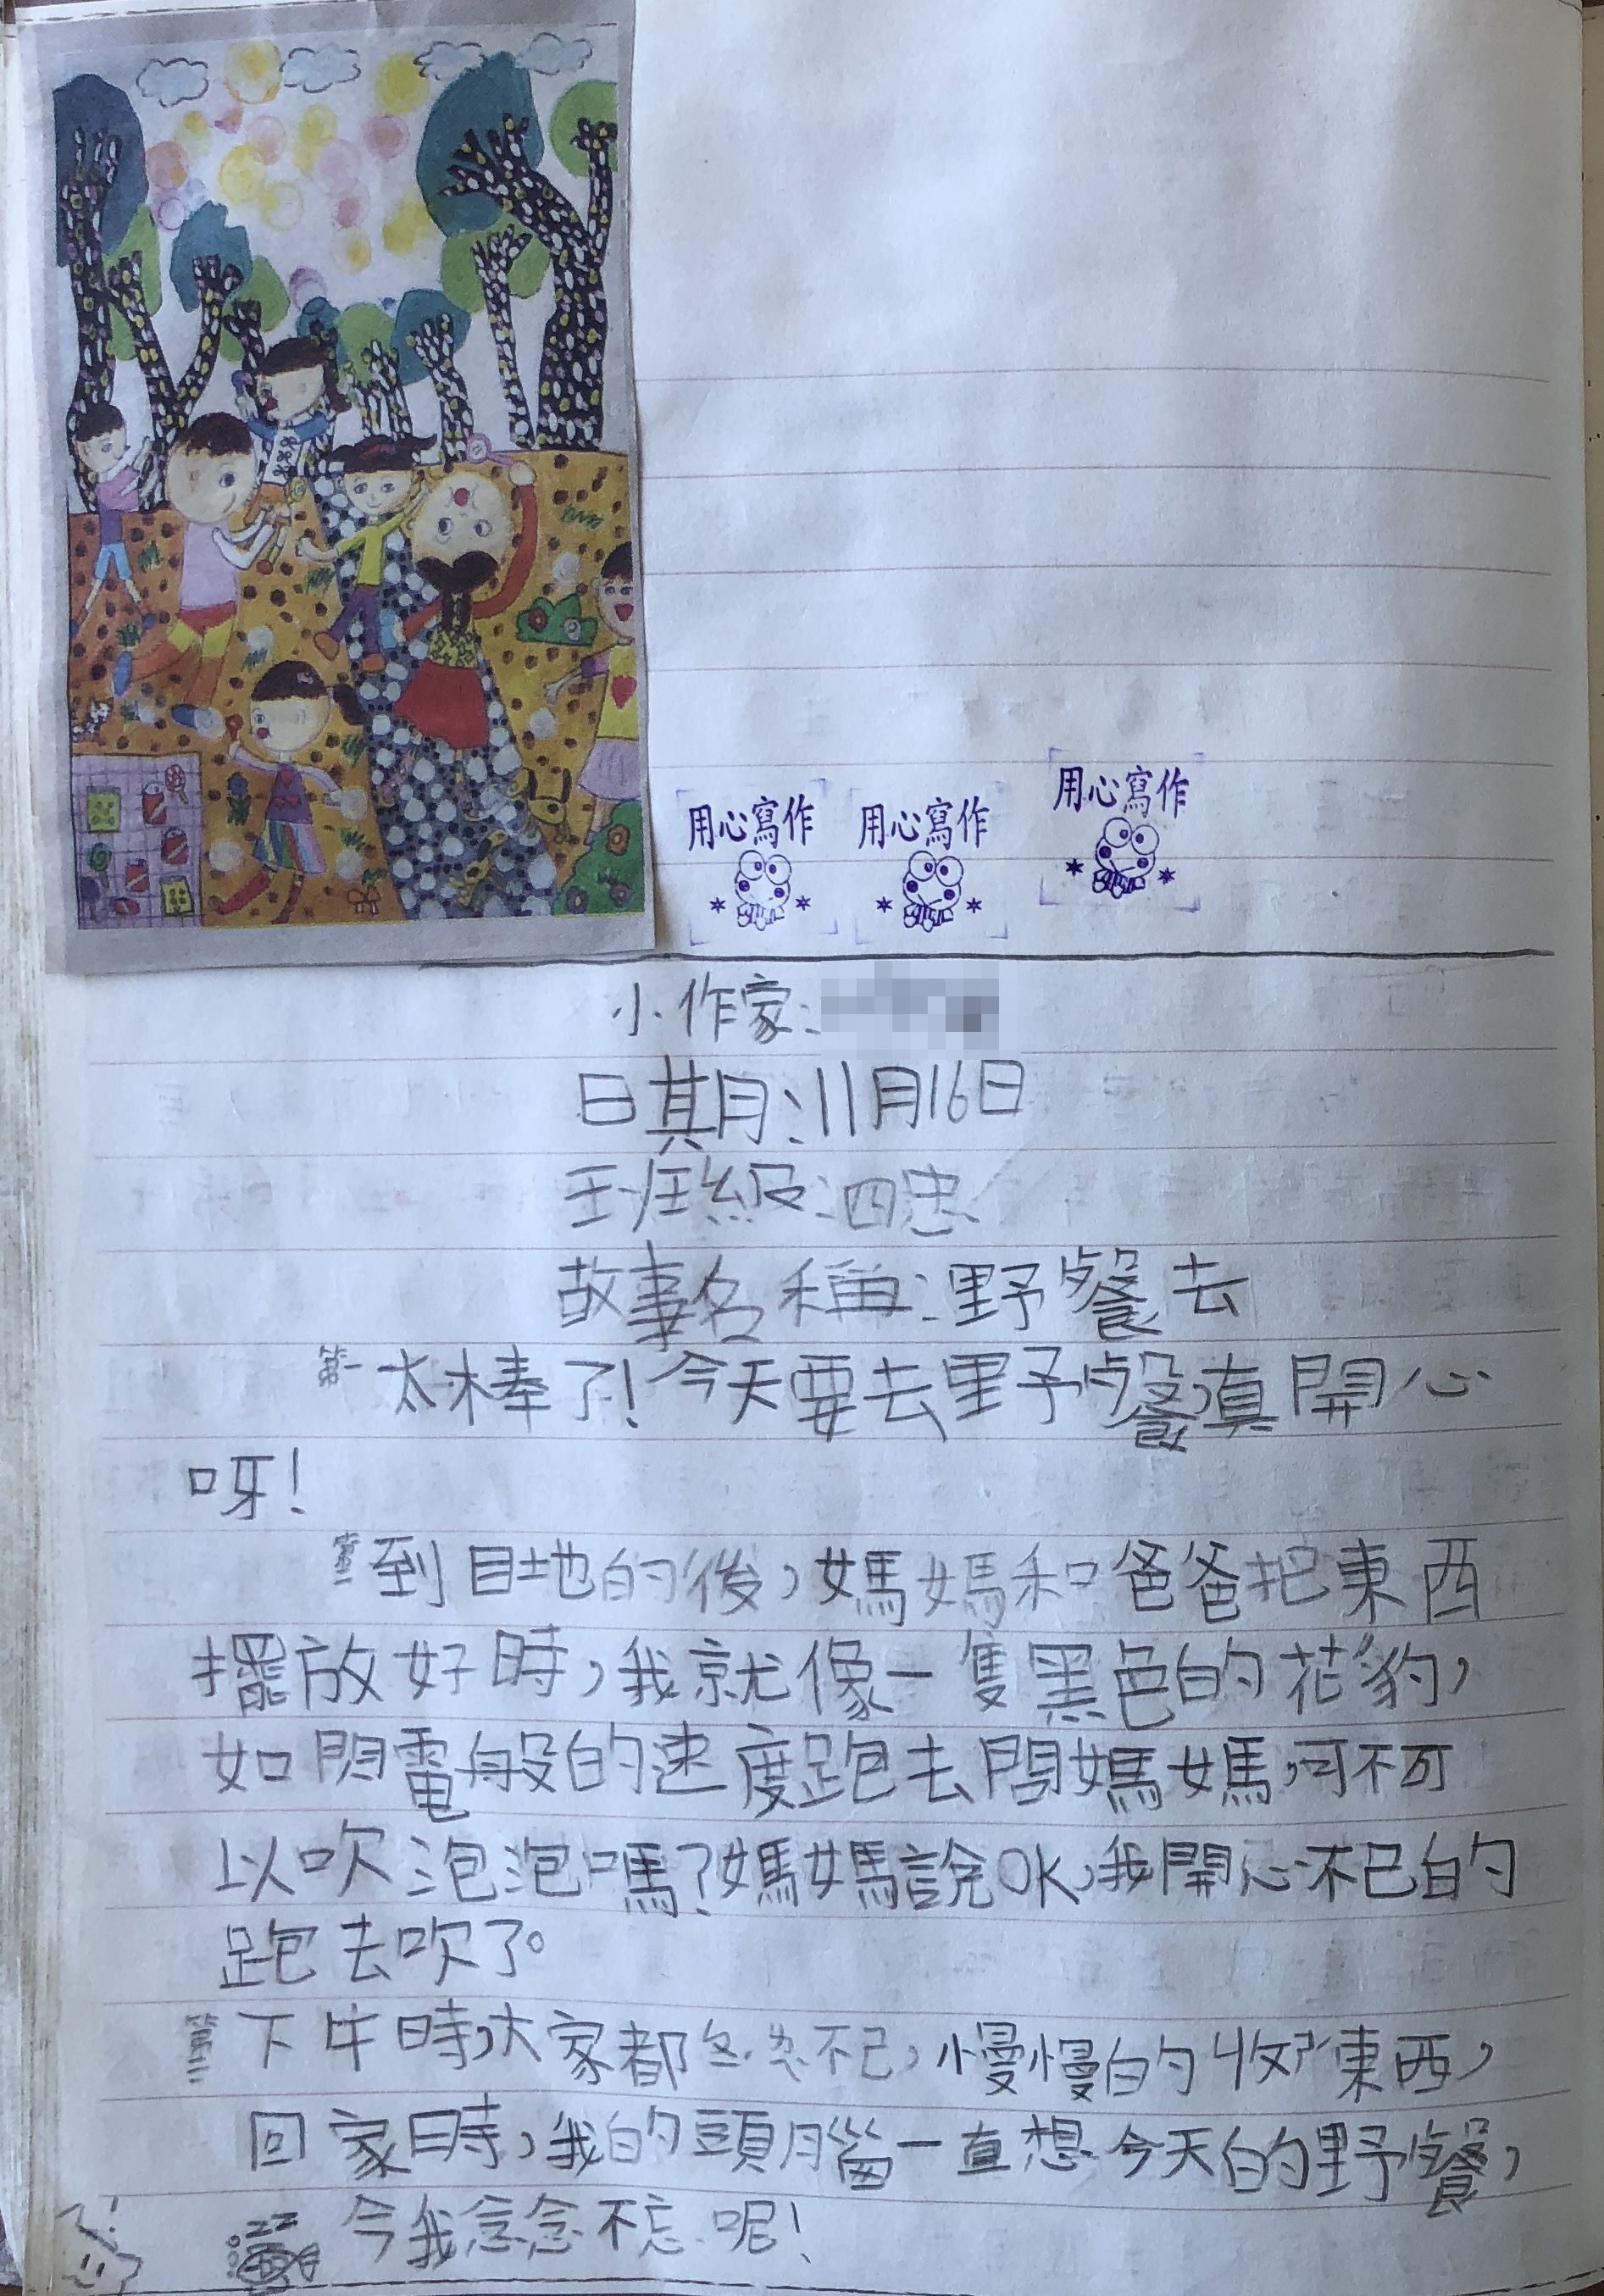 用心寫作 用心寫作 用心寫作
小作家:
日期:11月16日
班級:四忠
故事名稱:野餐去
第一 太棒了!今天要去野餐,真開心
呀!
第二 到目地的後,媽媽和爸爸把東西
擺放好時,我就像一隻黑色的花豹,
如閃電般的速度跑去問媽媽,可不可
以吹泡泡嗎?媽媽說OK,我開心不已的
跑去吹了。
第三 下午時,大家都忽忽不已,慢慢的收東西,
回家時,我的頭腦一直想今天的野餐,
今我念念不忘呢!